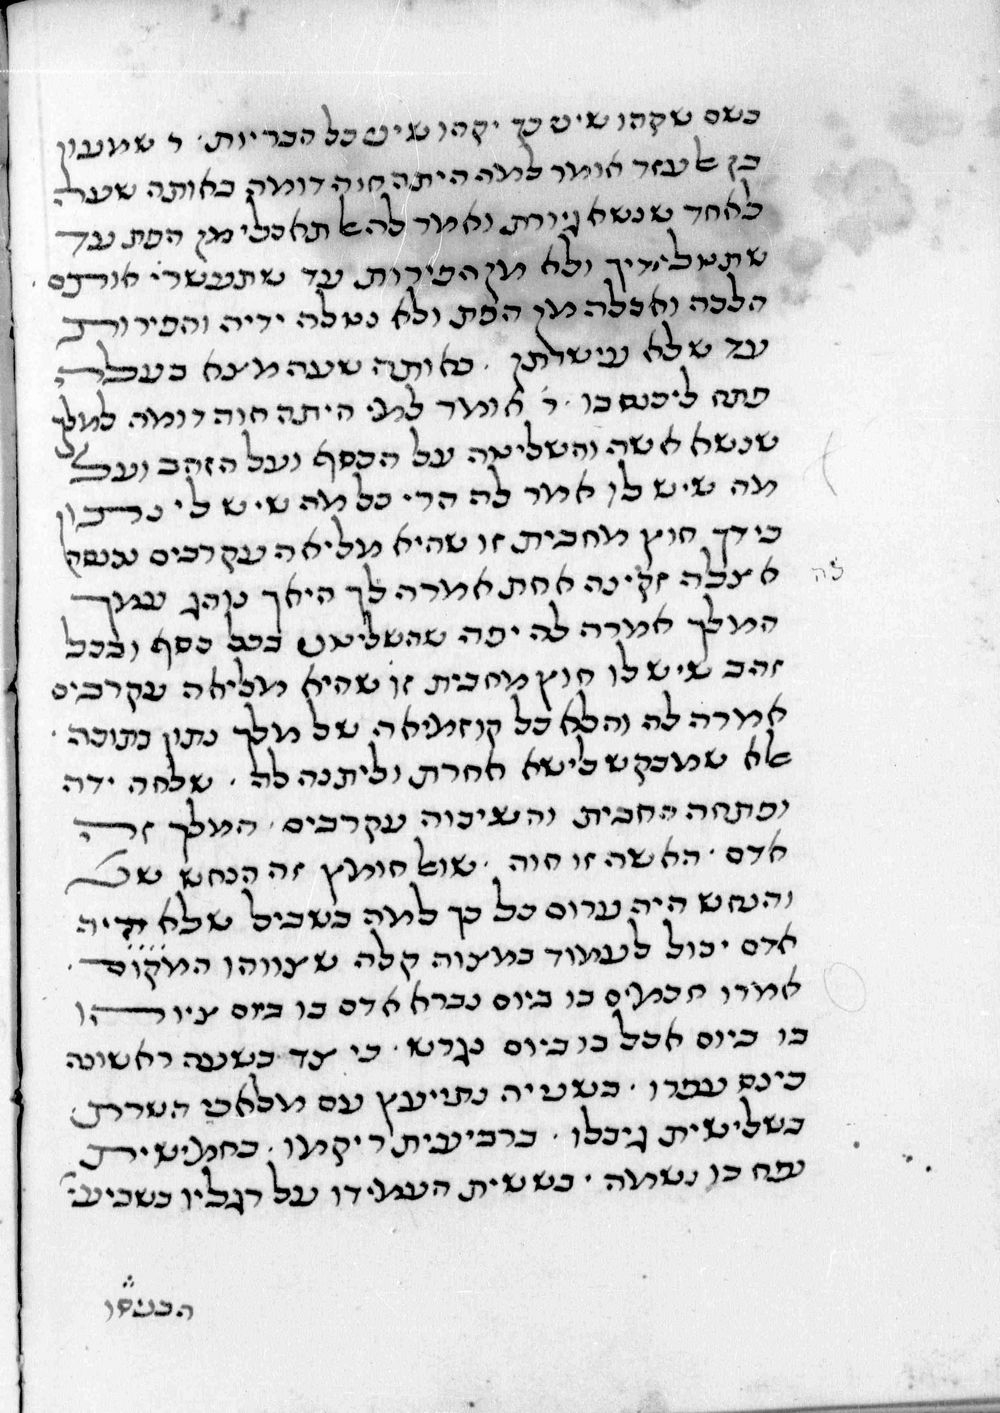 כשם שקהו שיניו כך יקהו שיני כל הבריות. ר שמעון
בן אלעזר אומר למה היתה חוה דומה באותה שעה
לאחד שנשא גיורת ואמר לה אל תאכלי מן הפת עד
שתטלי ידיך ולא מן הפירות עד שתעשרי אותם.
הלכה ואכלה מן הפת ולא נטלה ידיה והפירות
עד שלא עישרתן. באותה שעה מצא בעלה
פתח ליכנס בו. ר אומר למי היתה חוה דומה למלך
שנשא אשה והשליטה על הכסף ועל הזהב ועל כל
מה שיש לו אמר לה הרי כל מה שיש לי נתון
בידך חוץ מחבית זו שהיא מליאה עקרבים נכנסה
אצלה זקינה אחת אמרה לך היאך נוהג עמך לה
המלך אמרה לה יפה שהשליטני בכל כסף ובכל
זהב שיש לו חוץ מחבית זו שהיא מליאה עקרבים
אמרה לה והלא כל קוזמיאה של מלך נתון בתוכה.
אלא שמבקש לישא אחרת וליתנה לה. שלחה ידה
ופתחה החבית והשיכוה עקרבים. המלך זה
אדם. האשה זו חוה. שואל חומץ זה הנחש שנ
והנחש היה ערום כל כך למה בשביל שלא היה
אדם יכול לעמוד במצוה קלה שצווהו המקום.
אמרו חכמים בו ביום נברא אדם בו ביום ציוהו
בו ביום אכל בו ביום נגרש. כי צד בשעה ראשונה
כינס עפרו. בשנייה נתייעץ עם מלאכי השרת
בשלישית גיבלו. ברביעית ריקמו. בחמישית
נפח בו נשמה. בששית העמידו על רגליו בשביעי
הכניסו